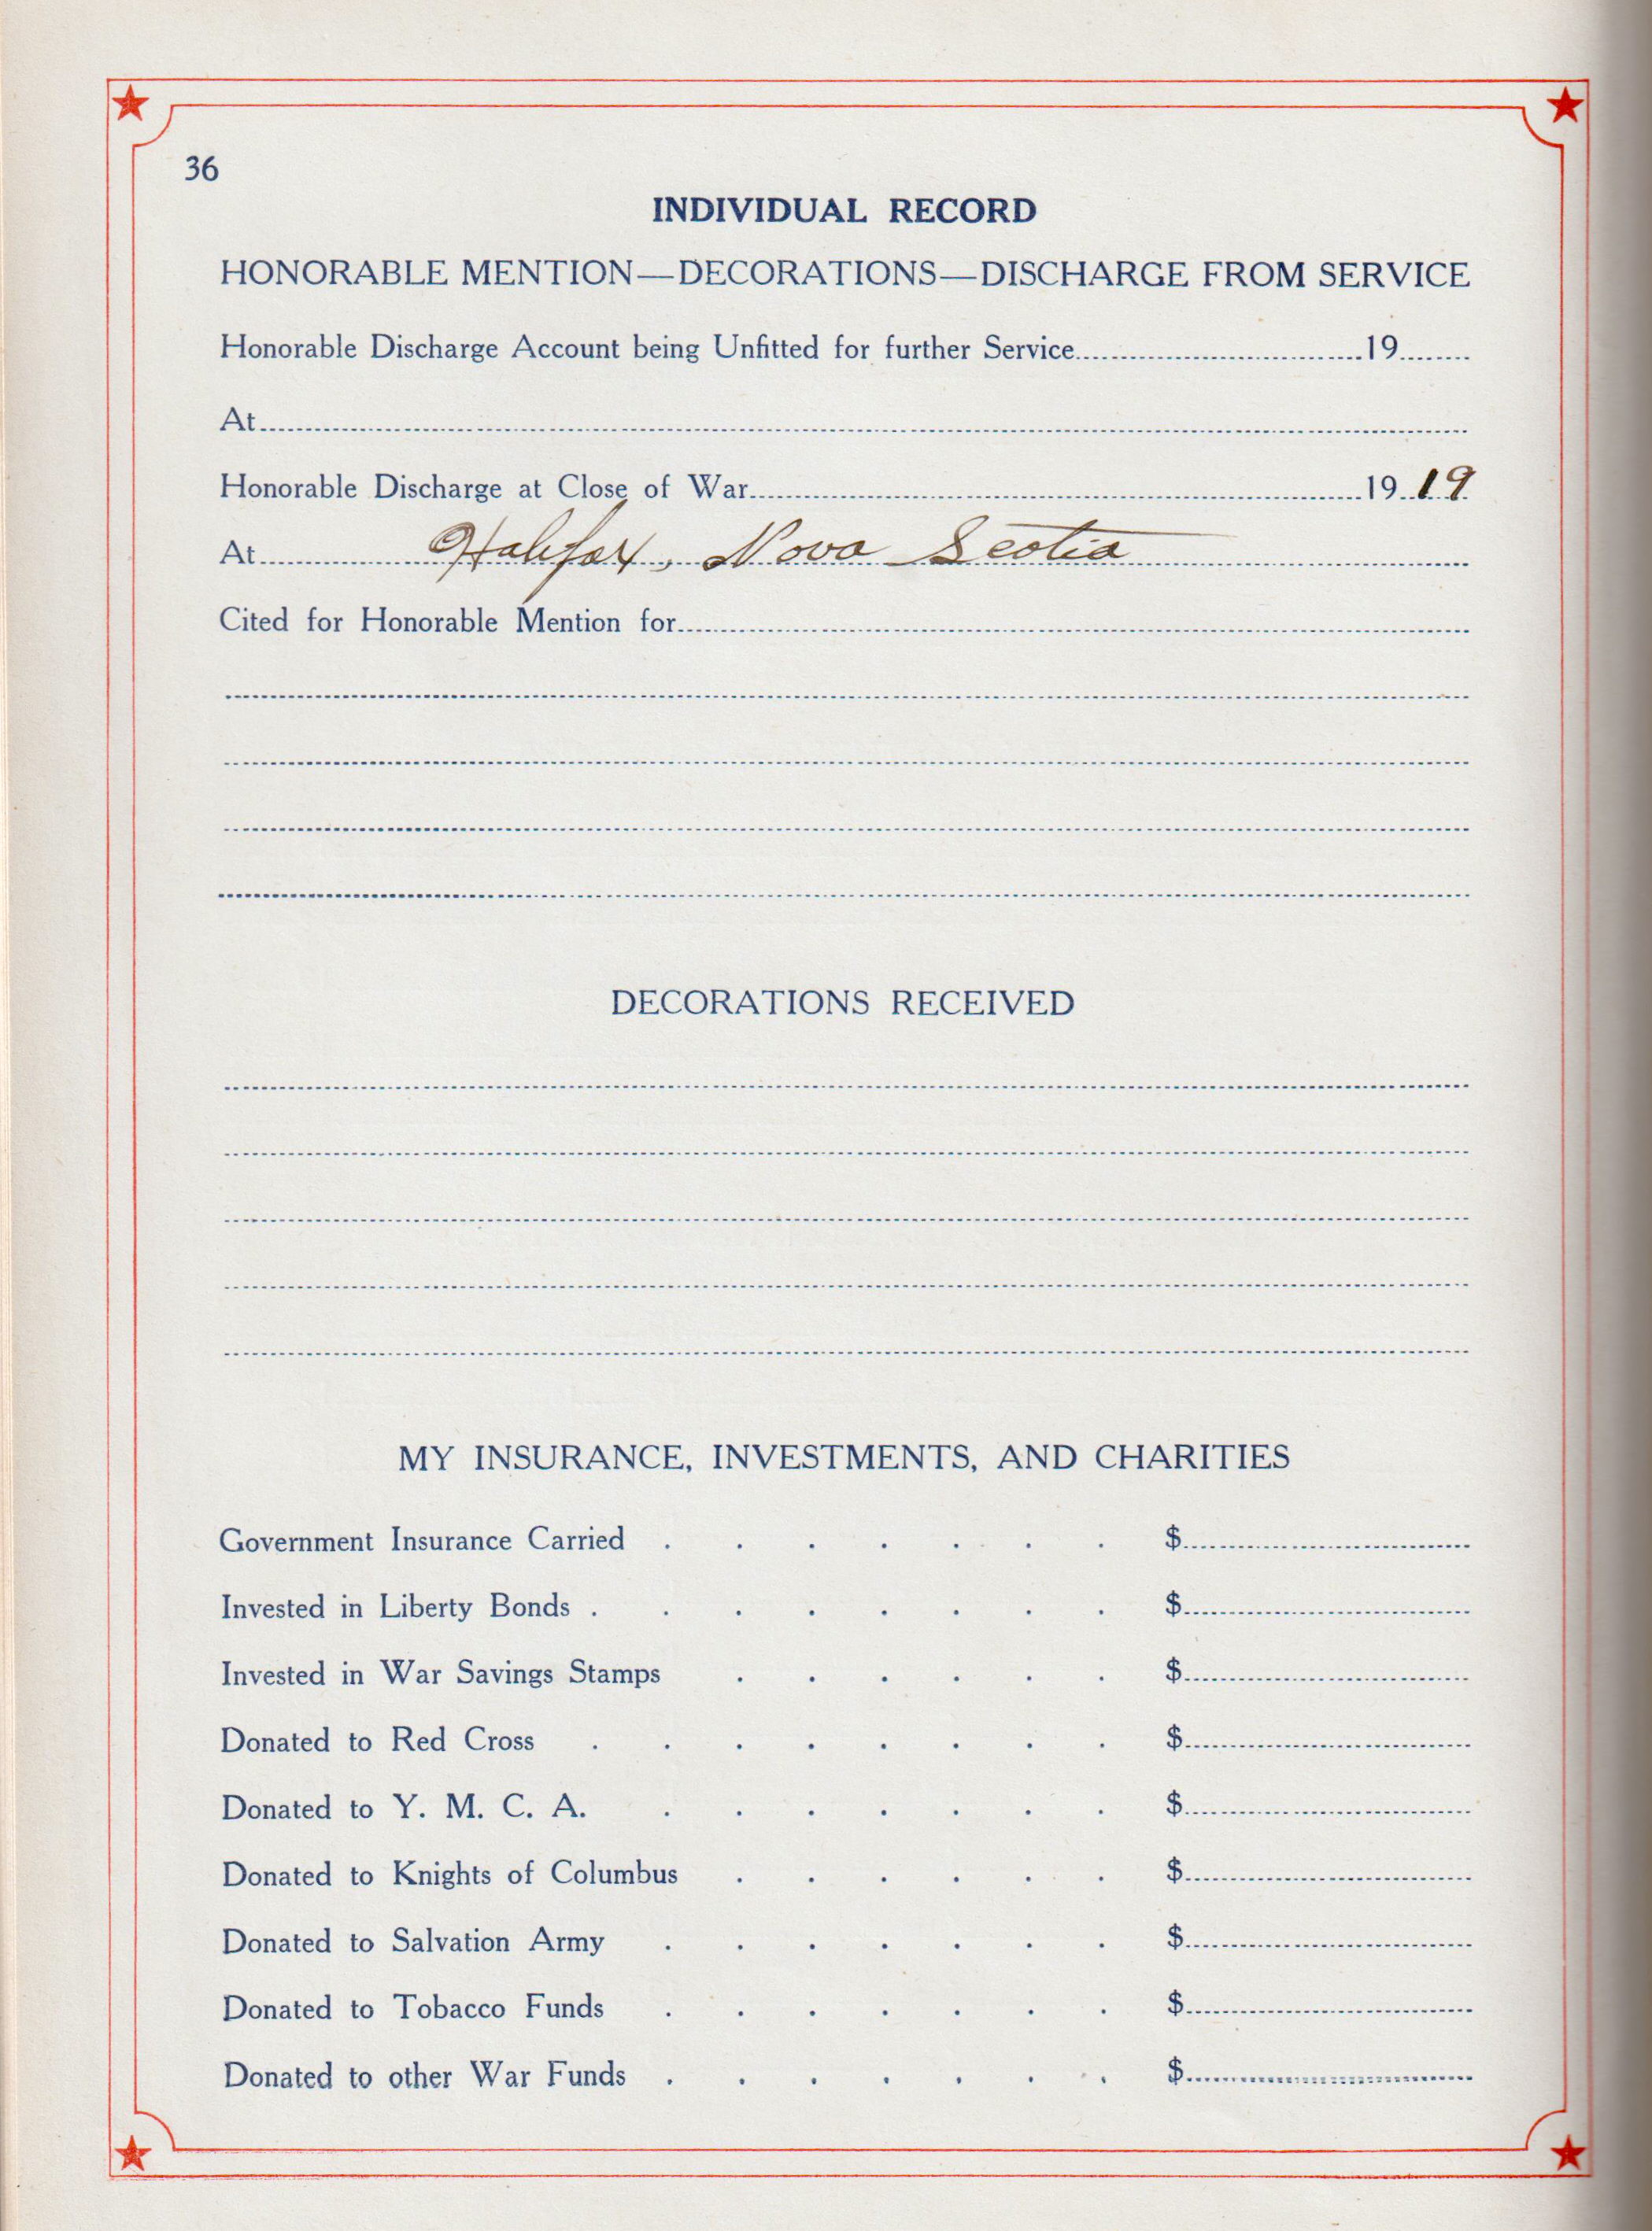 36
INDIVIDUAL RECORD
HONORABLE MENTION—DECORATIONS—DISCHARGE FROM SERVICE
Honorable Discharge Account being Unfitted for further Service 19
At
Honorable Discharge at Close of War 1919
At Halifax, Nova Scotia
Cited for Honorable Mention for
DECORATIONS RECEIVED
MY INSURANCE, INVESTMENTS, AND CHARITIES
Government Insurance Carried . . . . . . . $
Invested in Liberty Bonds . . . . . . . . $
Invested in War Savings Stamps . . . . . . $
Donated to Red Cross . . . . . . . . $
Donated to Y. M. C. A. . . . . . . . $
Donated to Knights of Columbus . . . . . . $
Donated to Salvation Army . . . . . . . $
Donated to Tobacco Funds . . . . . . . $
Donated to other War Funds . . . . . . . $